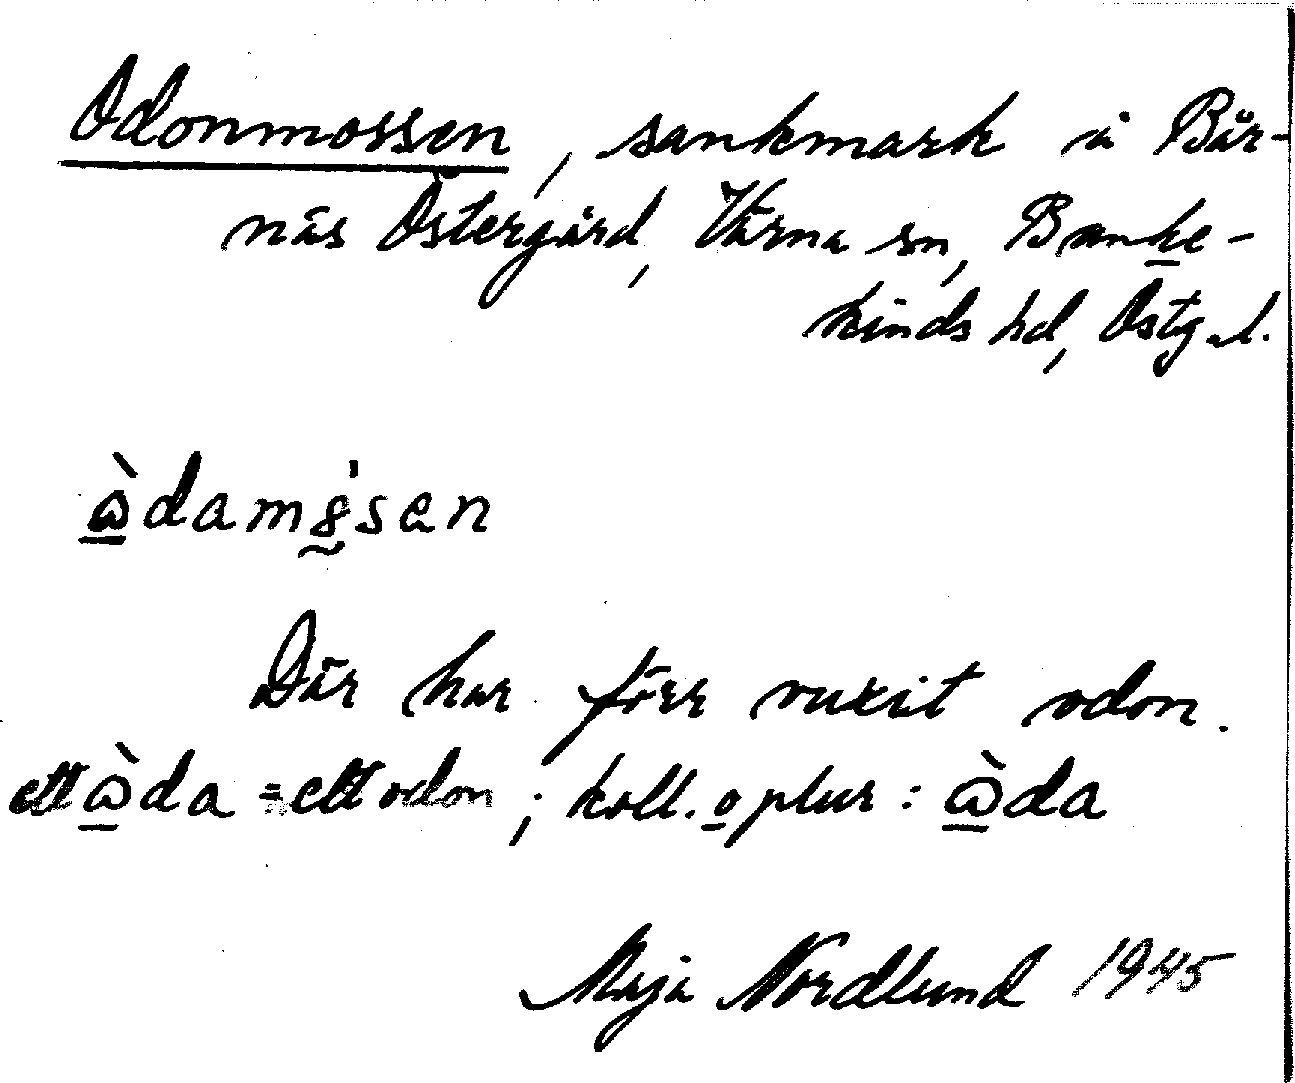 Odonmossen, sankmark å Bår-
näs Östergård, Värna sn, Banke-
kinds hd, Östg. l.
ὼdamꞝ̍sen
Där har förr vuxit odon.
ett ὼda = ett odon; koll. o plur: ὼda
Maja Nordlund 1945